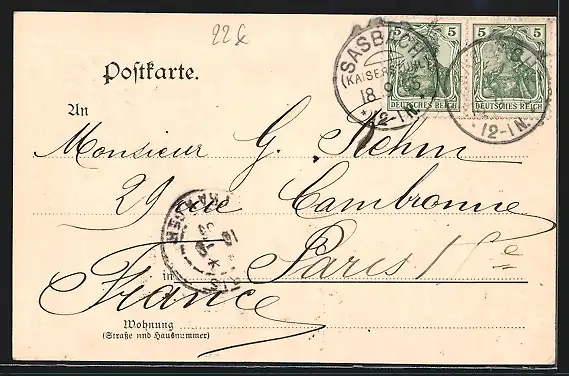 22
5 5
SASBACH
(KAISERSTUHL)
18 9 05
* 12-1N. *
* 12-1N.
DEUTSCHES REICH DEUTSCHES REICH
Postkarte.
An
Monsieur G. Rehm
29 rue Cambronne
in Paris 15e
France
Wohnung
(Straße und Hausnummer)